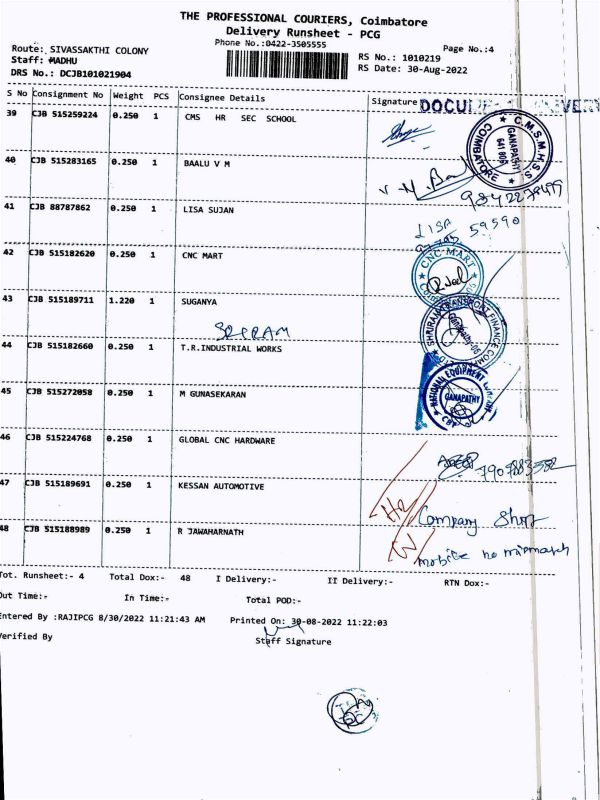 THE PROFESSIONAL COURIERS, Coimbatore
Delivery Runsheet - PCG
Phone No.:0422-3505555
Page No.:4
Route: SIVASSAKTHI COLONY
Staff: MADHU
DRS No.: DCJB101021904
RS No.: 1010219
RS Date: 30-Aug-2022
S No Consignment No Weight PCS Consignee Details Signature
39 CJB 515259224 0.250 1 CMS HR SEC SCHOOL
C.M.S.M.H.S.S. GANAPATHY COIMBATORE
40 CJB 515283165 0.250 1 BAALU V M
41 CJB 88787862 0.250 1 LISA SUJAN
LISA 59590
42 CJB 515182620 0.250 1 CNC MART
CNC-MART
43 CJB 515189711 1.220 1 SUGANYA
SRIRAM
SHRIRAM TRANSPORT FINANCE COMPANY
44 CJB 515182660 0.250 1 T.R.INDUSTRIAL WORKS
NATIONAL EQUIPMENT GANAPATHY
45 CJB 515272058 0.250 1 M GUNASEKARAN
46 CJB 515224768 0.250 1 GLOBAL CNC HARDWARE
47 CJB 515189691 0.250 1 KESSAN AUTOMOTIVE
Company Shift
48 CJB 515188989 0.250 1 R JAWAHARNATH
mobile no mismatch
Tot. Runsheet:- 4 Total Dox:- 48 I Delivery:- II Delivery:- RTN Dox:-
Out Time:- In Time:- Total POD:-
Entered By :RAJIPCG 8/30/2022 11:21:43 AM Printed On: 30-08-2022 11:22:03
Verified By Staff Signature